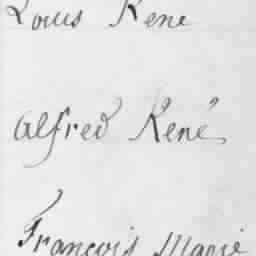 Louis René
Alfred René
François Marie